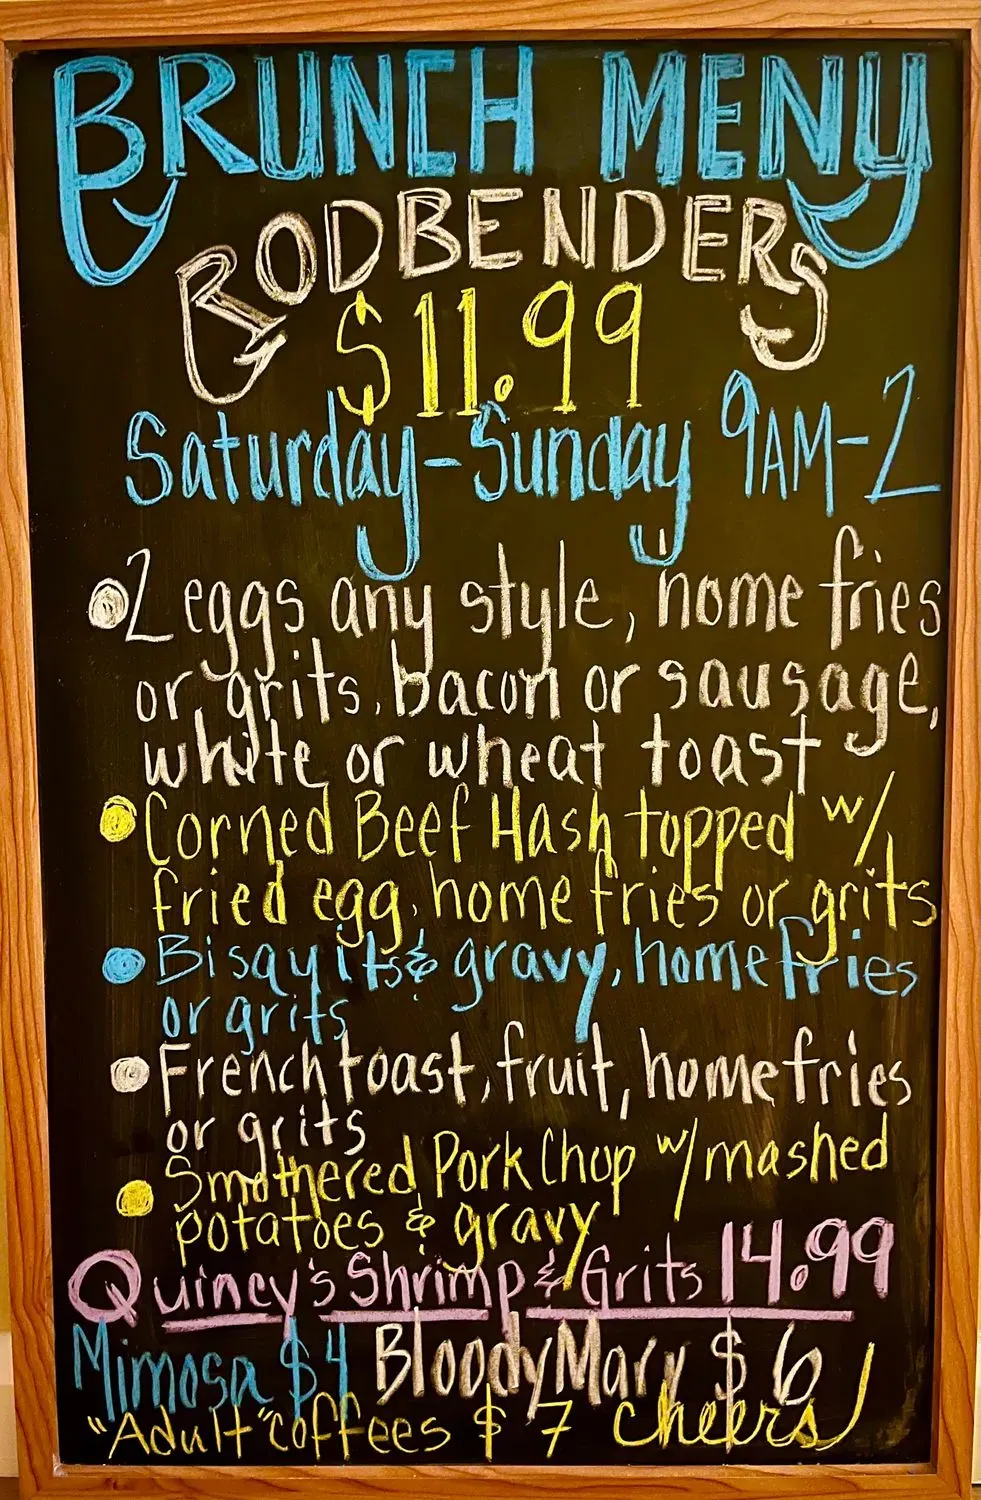 BRUNCH MENU
RODBENDERS
$11.99
Saturday-Sunday 9AM-2
• 2 eggs any style, home fries
or grits, bacon or sausage,
white or wheat toast
• Corned Beef Hash topped w/
fried egg, home fries or grits
• Bisquits & gravy, home fries
or grits
• French toast, fruit, home fries
or grits
• Smothered Pork Chop w/ mashed
potatoes & gravy
Quincy's Shrimp & Grits 14.99
Mimosa $4 Bloody Mary $6
"Adult" coffees $7 cheers!